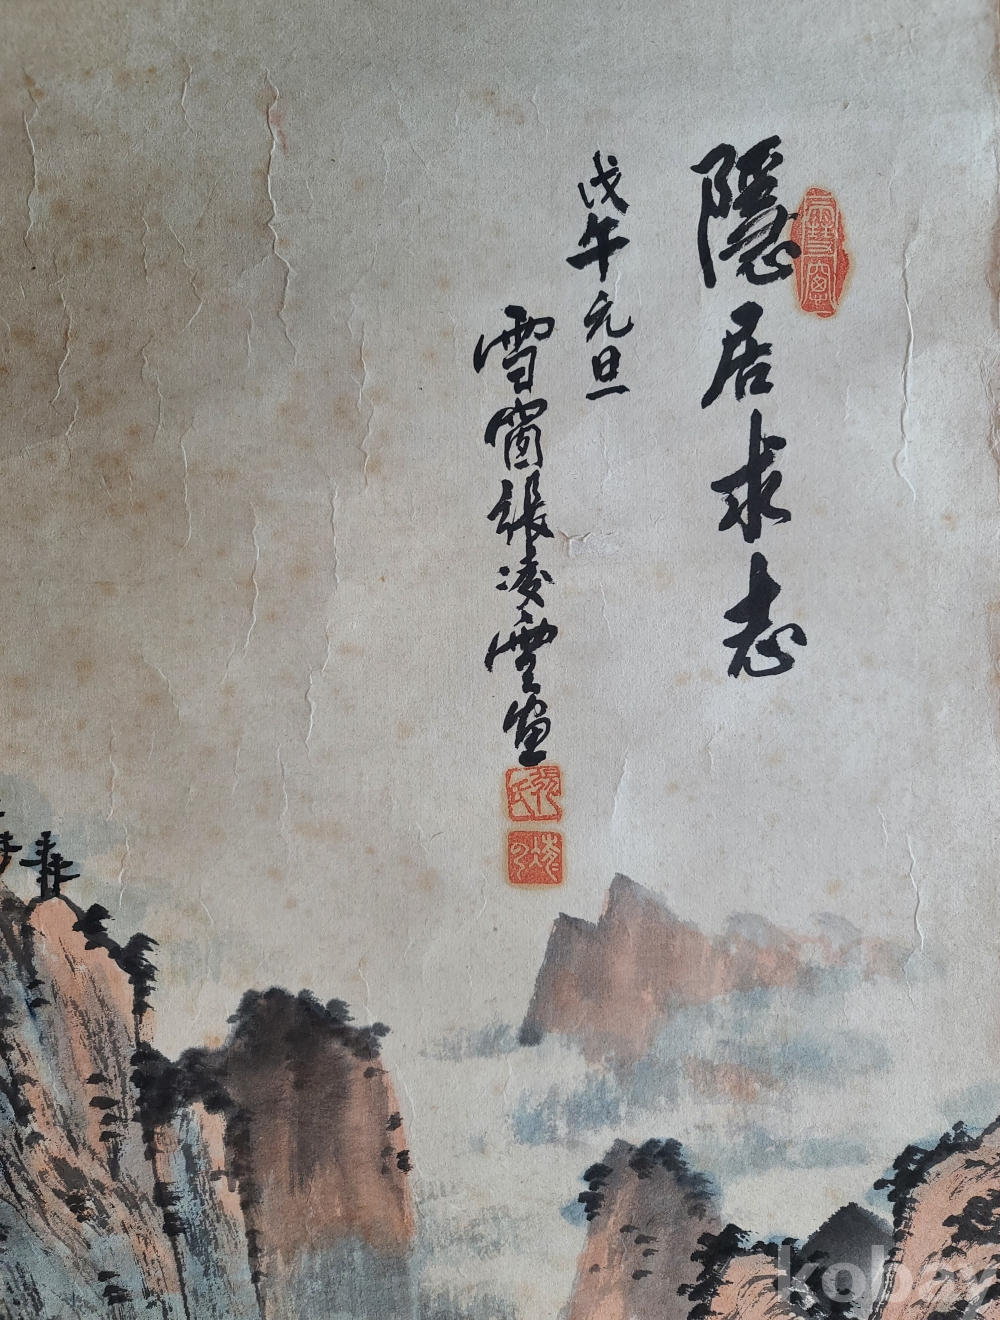 隱居求志
戊午元旦
雪窗張凌雲画
張氏
kobay